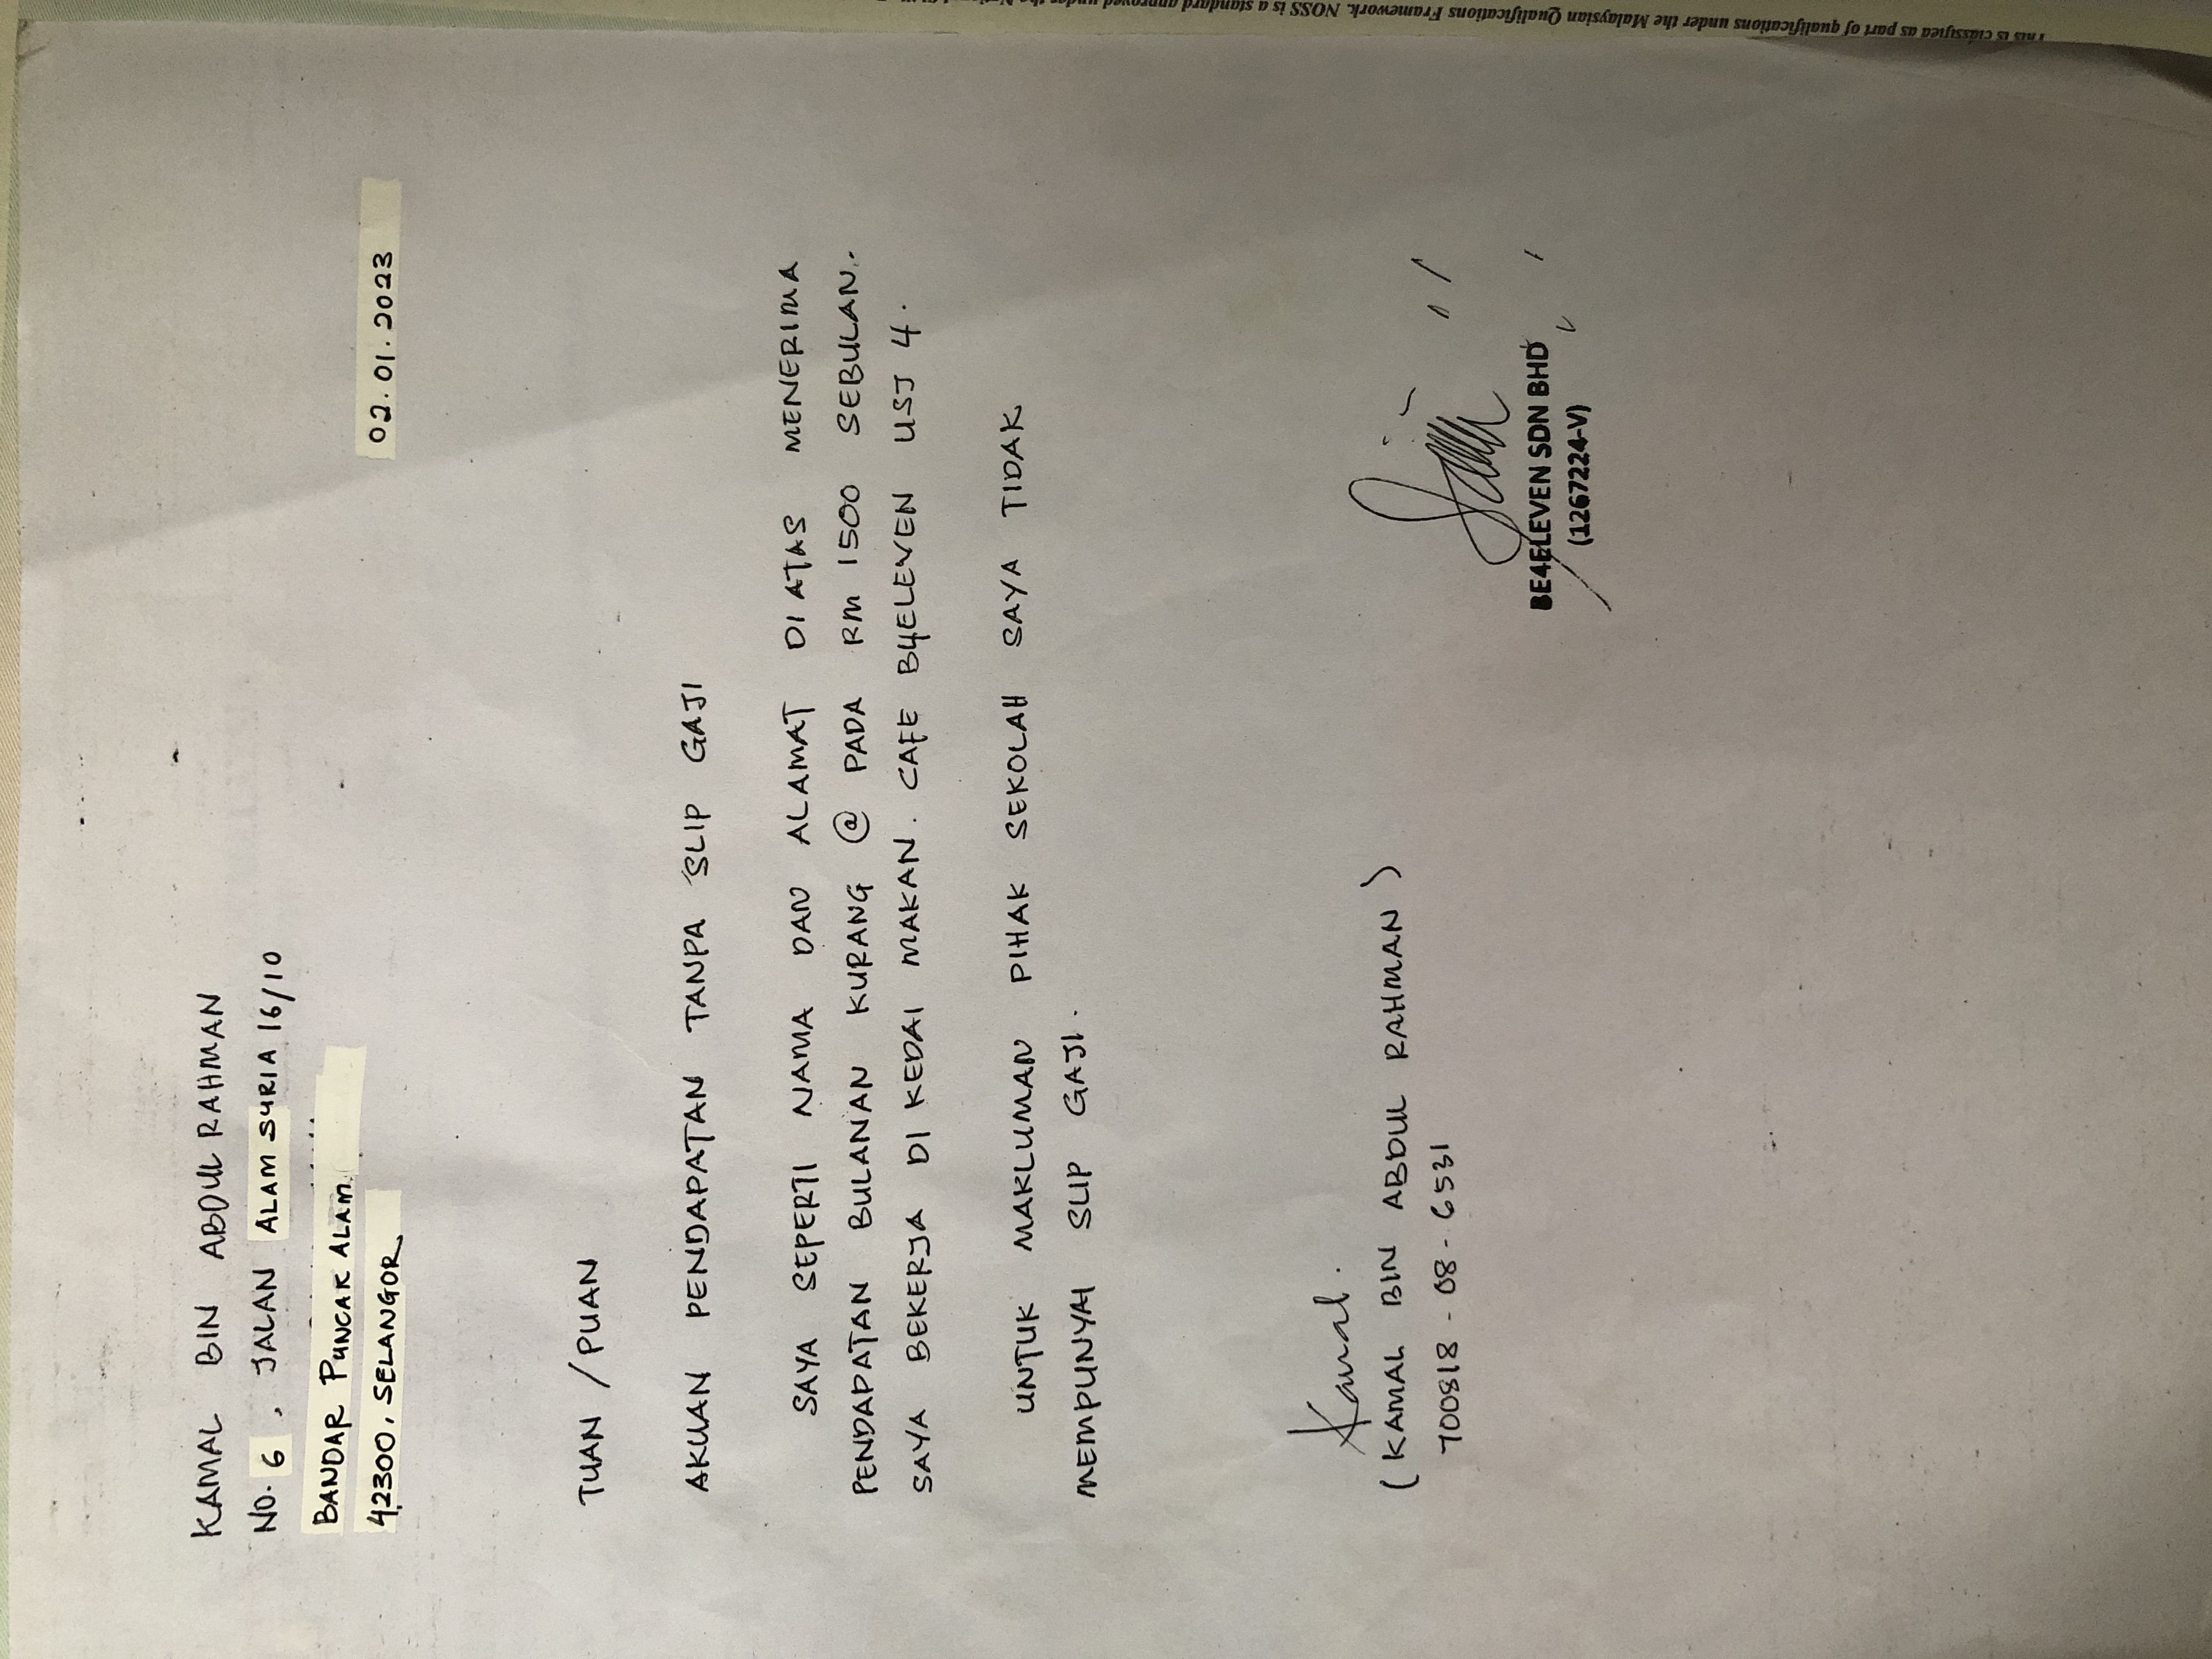 KAMAL BIN ABDUL RAHMAN
NO. 6, JALAN ALAM SURIA 16/10
BANDAR PUNCAK ALAM
42300, SELANGOR
02.01.2023
TUAN / PUAN
AKUAN PENDAPATAN TANPA SLIP GAJI
SAYA SEPERTI NAMA DAN ALAMAT DI ATAS MENERIMA
PENDAPATAN BULANAN KURANG @ PADA RM 1500 SEBULAN.
SAYA BEKERJA DI KEDAI MAKAN. CAFE B4ELEVEN USJ 4.
UNTUK MAKLUMAN PIHAK SEKOLAH SAYA TIDAK
MEMPUNYAI SLIP GAJI.
Kamal.
(KAMAL BIN ABDUL RAHMAN)
700818-08-6531
BE4ELEVEN SDN BHD
(1267224-V)
This is classified as part of qualifications under the Malaysian Qualifications Framework. NOSS is a standard approved under the